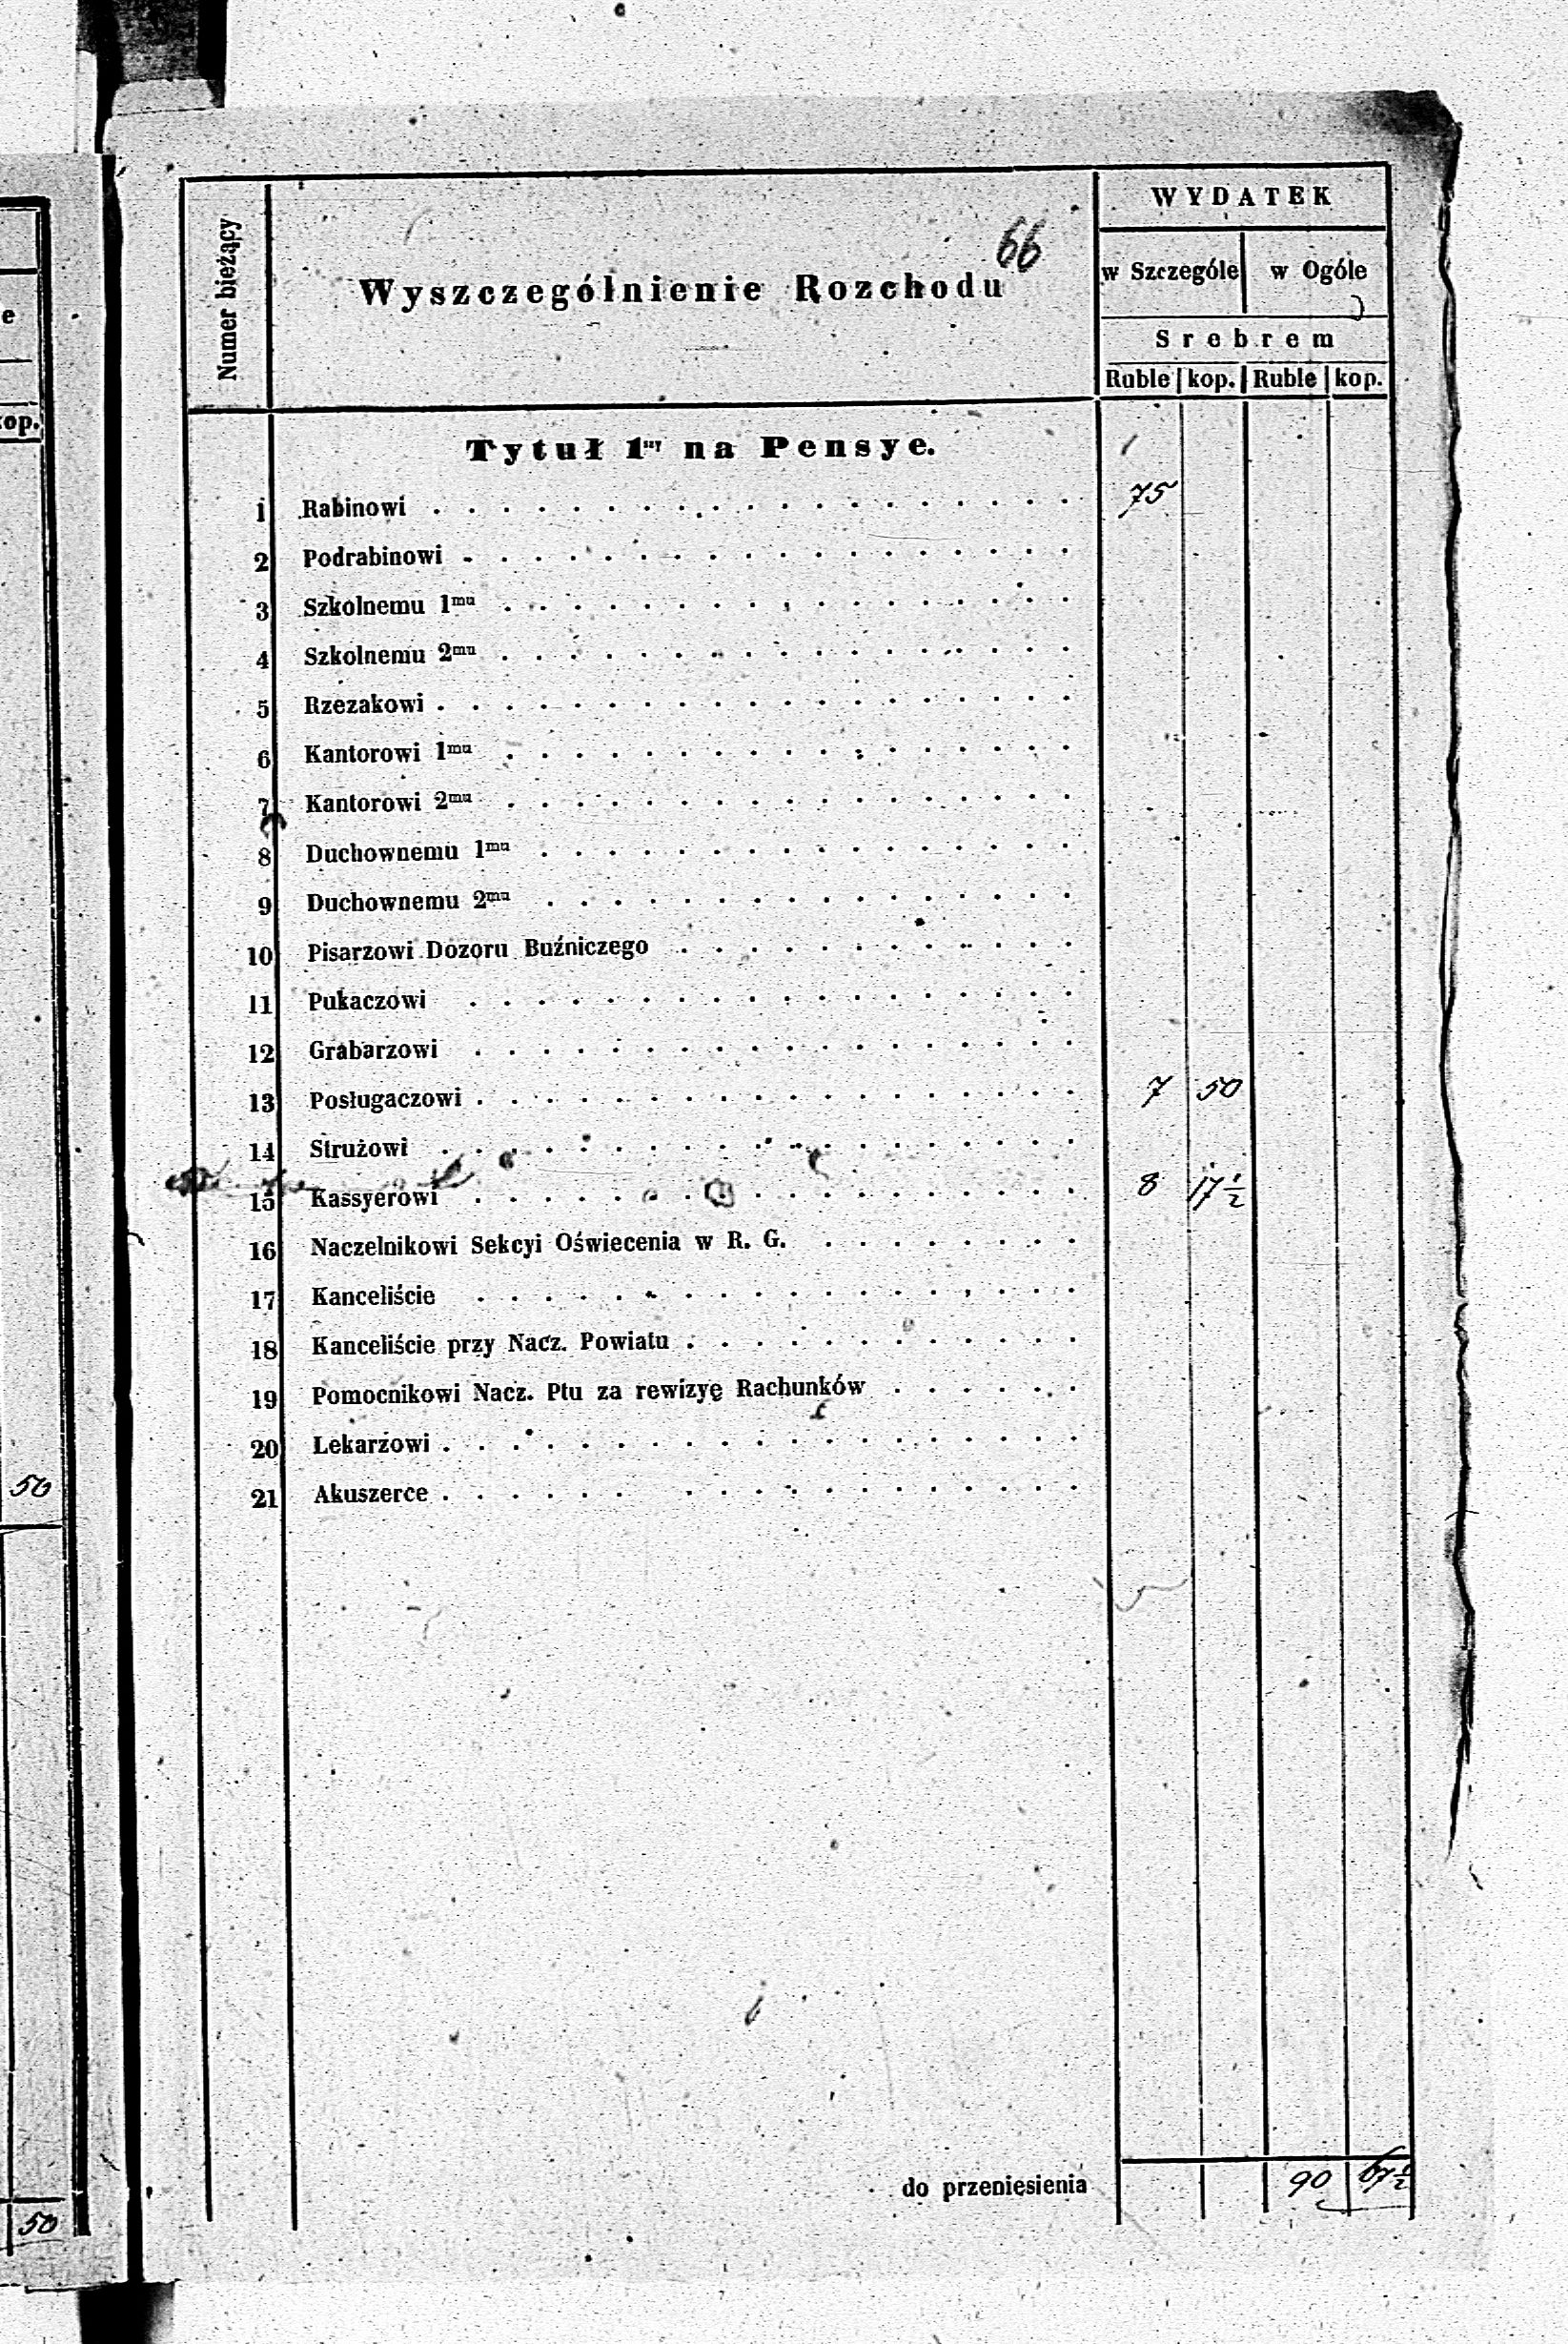 e
kop.
50
50
66
Numer bieżący
Wyszczególnienie Rozchodu
WYDATEK
w Szczególe w Ogóle
Srebrem
Ruble kop. Ruble kop.
Tytuł 1szy na Pensye.
1 Rabinowi 75
2 Podrabinowi
3 Szkolnemu 1mu
4 Szkolnemu 2mu
5 Rzezakowi
6 Kantorowi 1mu
7 Kantorowi 2mu
8 Duchownemu 1mu
9 Duchownemu 2mu
10 Pisarzowi Dozoru Buźniczego
11 Pukaczowi
12 Grabarzowi
13 Posługaczowi 7 50
14 Strużowi
15 Kassyerowi 8 17½
16 Naczelnikowi Sekcyi Oświecenia w R. G.
17 Kanceliście
18 Kanceliście przy Nacz. Powiatu
19 Pomocnikowi Nacz. Ptu za rewizyę Rachunków
20 Lekarzowi
21 Akuszerce
do przeniesienia 90 67½